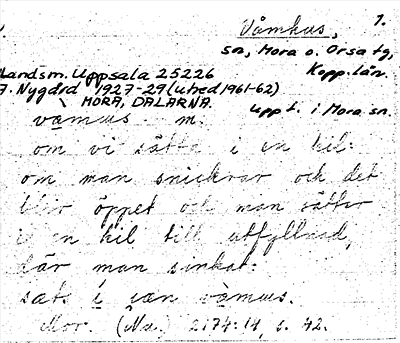 Våmhus, 1.
sn, Mora o. Orsa tg,
Landsm. Uppsala 25226 Kopp. län.
F. Nygård 1927-29 (utred 1961-62)
MORA, DALARNA. Uppt. i Mora sn.
våmus m.
om vi sätta i en kil:
om man snickrar och det
blir öppet och man sätter
i en kil till utfyllnad,
där man sinkat:
sats i
Mor. (Na.) 2174:14, s. 42.